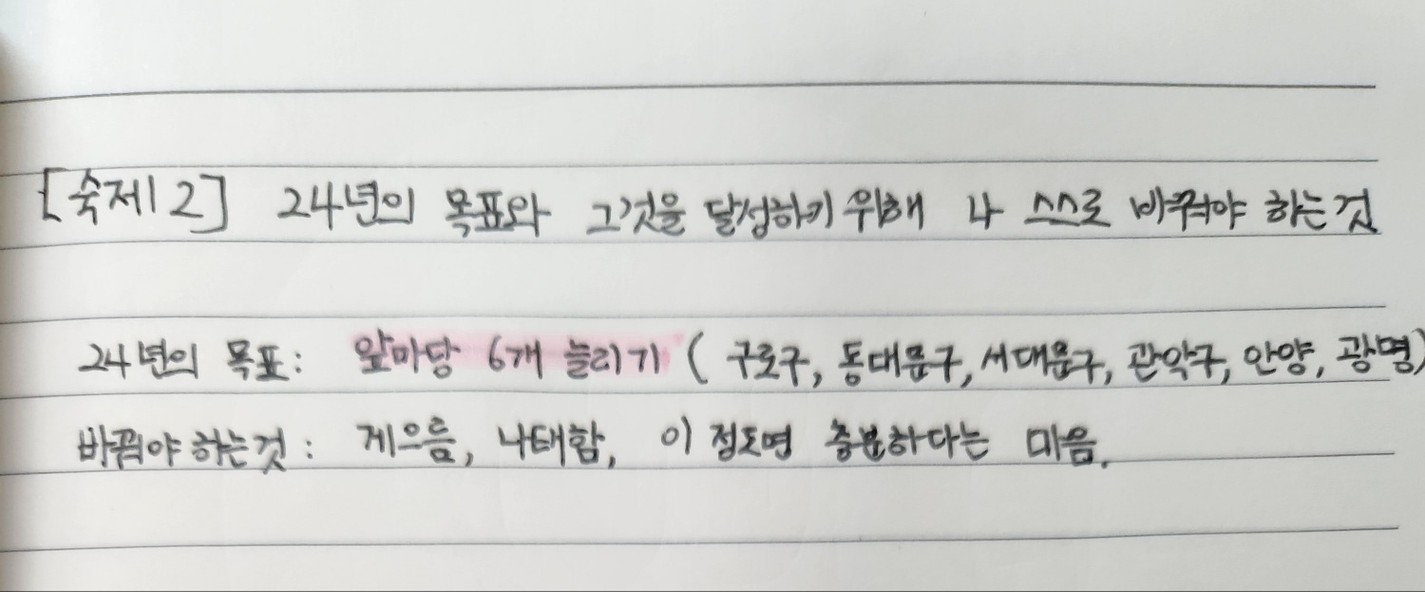 [숙제 2] 24년의 목표와 그것을 달성하기 위해 나 스스로 바꿔야 하는것
24년의 목표: 앞마당 6개 늘리기 (구로구, 동대문구, 서대문구, 관악구, 안양, 광명)
바꿔야 하는것: 게으름, 나태함, 이 정도면 충분하다는 마음.